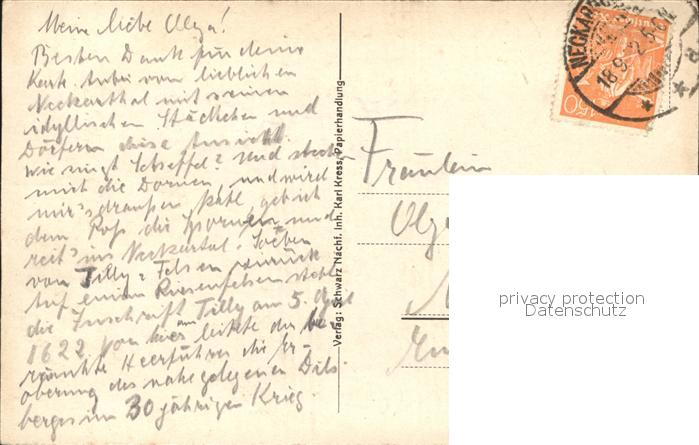 Meine liebe Olga!
Besten Dank für deine
Karte. Anbei vom lieblichen
Neckarthal mit seinen
idyllischen Städtchen und
Dörfern diese Ansicht.
Wie singt Scheffel? Und stechen
mich die Dornen, und wird
mir's draußen kahl, geb ich
dem Roß die Sporen, und
reit' ins Neckartal. Soeben
vom Tilly-Felsen zurück.
Auf einem Riesenfelsen steht
die Inschrift Tilly am 5.
1622 Von hier leitete der be-
rühmte Heerführer die Er-
oberung des nahe gelegenen Dils-
berges im 30 jährigen Krieg.
Verlag: Schwarz Nachf. Inh. Karl Kress, Papierhandlung
NECKAR
18.9.2
150
Fräulein
Olga
privacy protection
Datenschutz